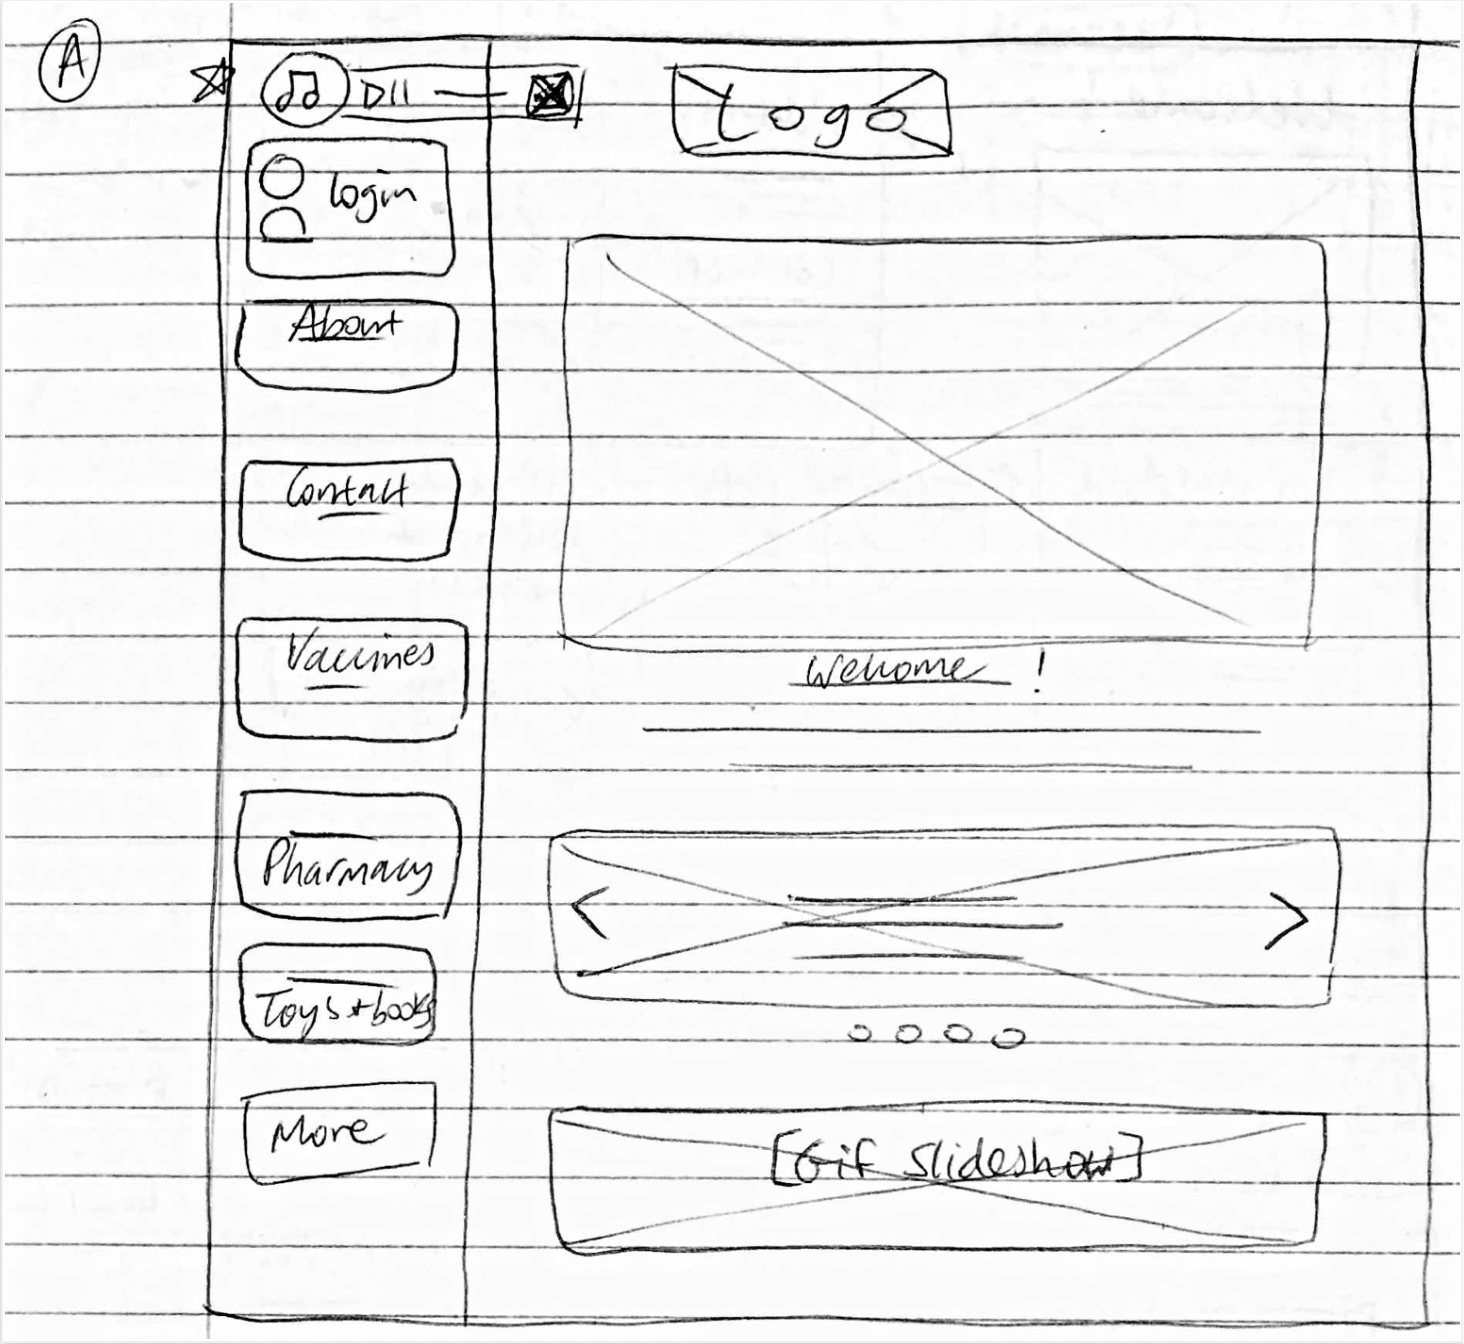 A
DII
Logo
Login
About
Contact
Vaccines
Pharmacy
Toys + books
More
Welcome !
[Gif Slideshow]